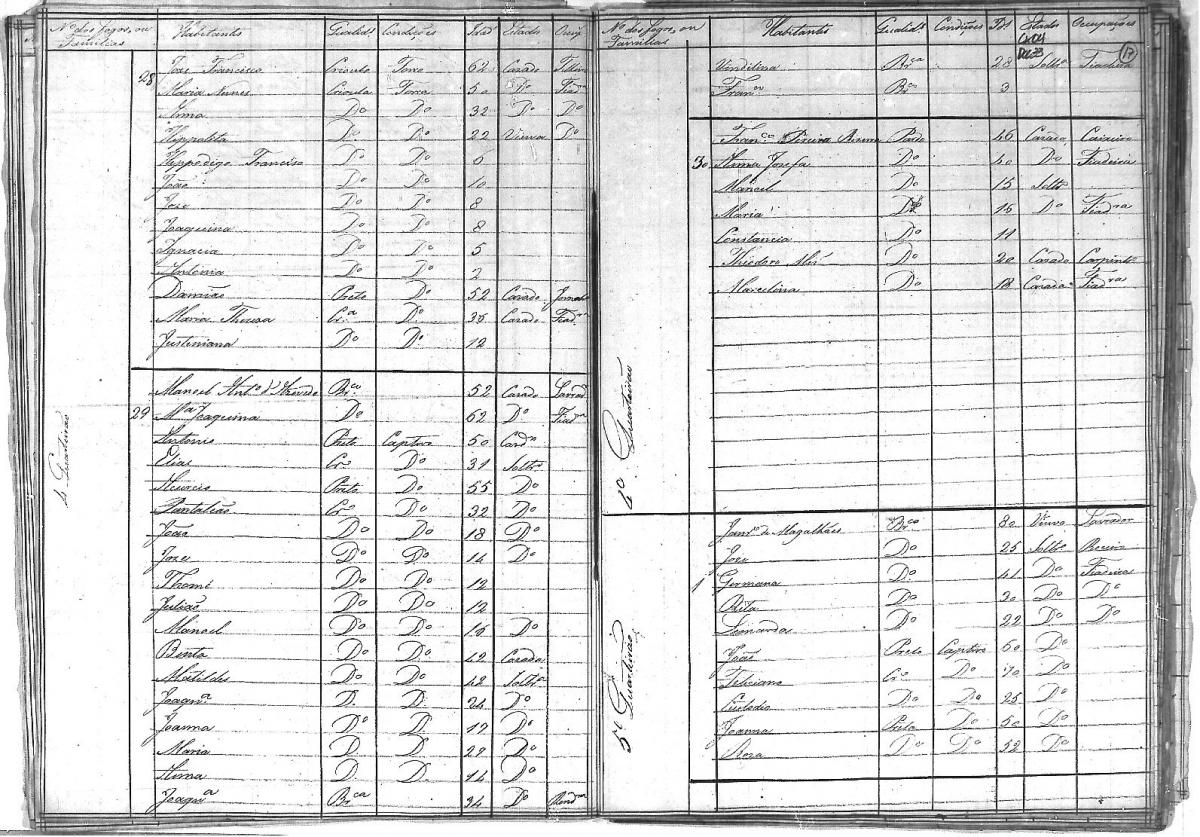 Nº dos fogos, ou Familias Habitantes Qualid.e Condições Idade Estados Ocup.
28 Joze Francisco Crioulo Forro 62 Cazado
Maria Nunes Crioula Forra 50 Dº Fiadª
Anna Dº Dº 32 Dº Dº
Hippolita Dº Dº 22 Viuva Dº
Francisco Dº Dº 6
João Dº Dº 10
Joze Dº Dº 8
Joaquina Dº Dº 8
Ignacia Dº Dº 5
Antonia Dº Dº 2
Damião Preto Dº 52 Cazado Jornal
Maria Thereza Crª Dº 36 Cazado Fiadª
Justiniana Dº Dº 12
4º Quarteirão
Manoel Antº d'Azevedo Brco 52 Cazado Lavrad
29 Mª Joaquina Dº 62 Dº Fiadrª
Antonio Preto Captivo 50 Cazdº
Elias Crº Dº 31 Soltº
Preto Dº 55 Dº
Pantalião Crº Dº 32 Dº
João Dº Dº 18 Dº
Joze Dº Dº 14 Dº
Thomé Dº Dº 12
Julião Dº Dº 12
Manoel Dº Dº 16 Dº
Benta Dº Dº 42 Cazada
Matildes Dº Dº 42 Soltª
Joaqmª D. D. 24 Dº
Joanna Dº D. 17 Dº
Maria D. D. 22 Dº
Anna D. D. 14 Dº
Joaqª Brca 24 Dº Rendrª
Nº dos fogos, ou Familias Habitantes Qualid.e Condições Id.e Estados Occupações
17
Vindilina Brca 28 Soltª Fiadeira
Franco Brco 3
Franco Pereira Pardo 46 Cazado
30 Anna Jozefa Dº 40 Dº Fiadeira
Manoel Dº 15 Soltº
Maria Dº 16 Dº Fiadrª
Constancia Dº 11
Theodoro Dº 20 Cazado Carpintº
Marcelina Dº 18 Cazada Fiadrª
4º Quarteirão
5º Quarteirão
Janrº de Magalhães Brco 80 Viuvo Lavrador
Joze Dº 25 Soltº
1 Germana Dº 41 Dº Fiadeira
Rita Dº 30 Dº Dº
Leonarda Dº 22 Dº Dº
João Preto Captivo 60 Dº
Feliciano Crº Dº 70 Dº
Dº Dº 25 Dº
Joanna Preta Dº 50 Dº
Roza Dº Dº 32 Dº